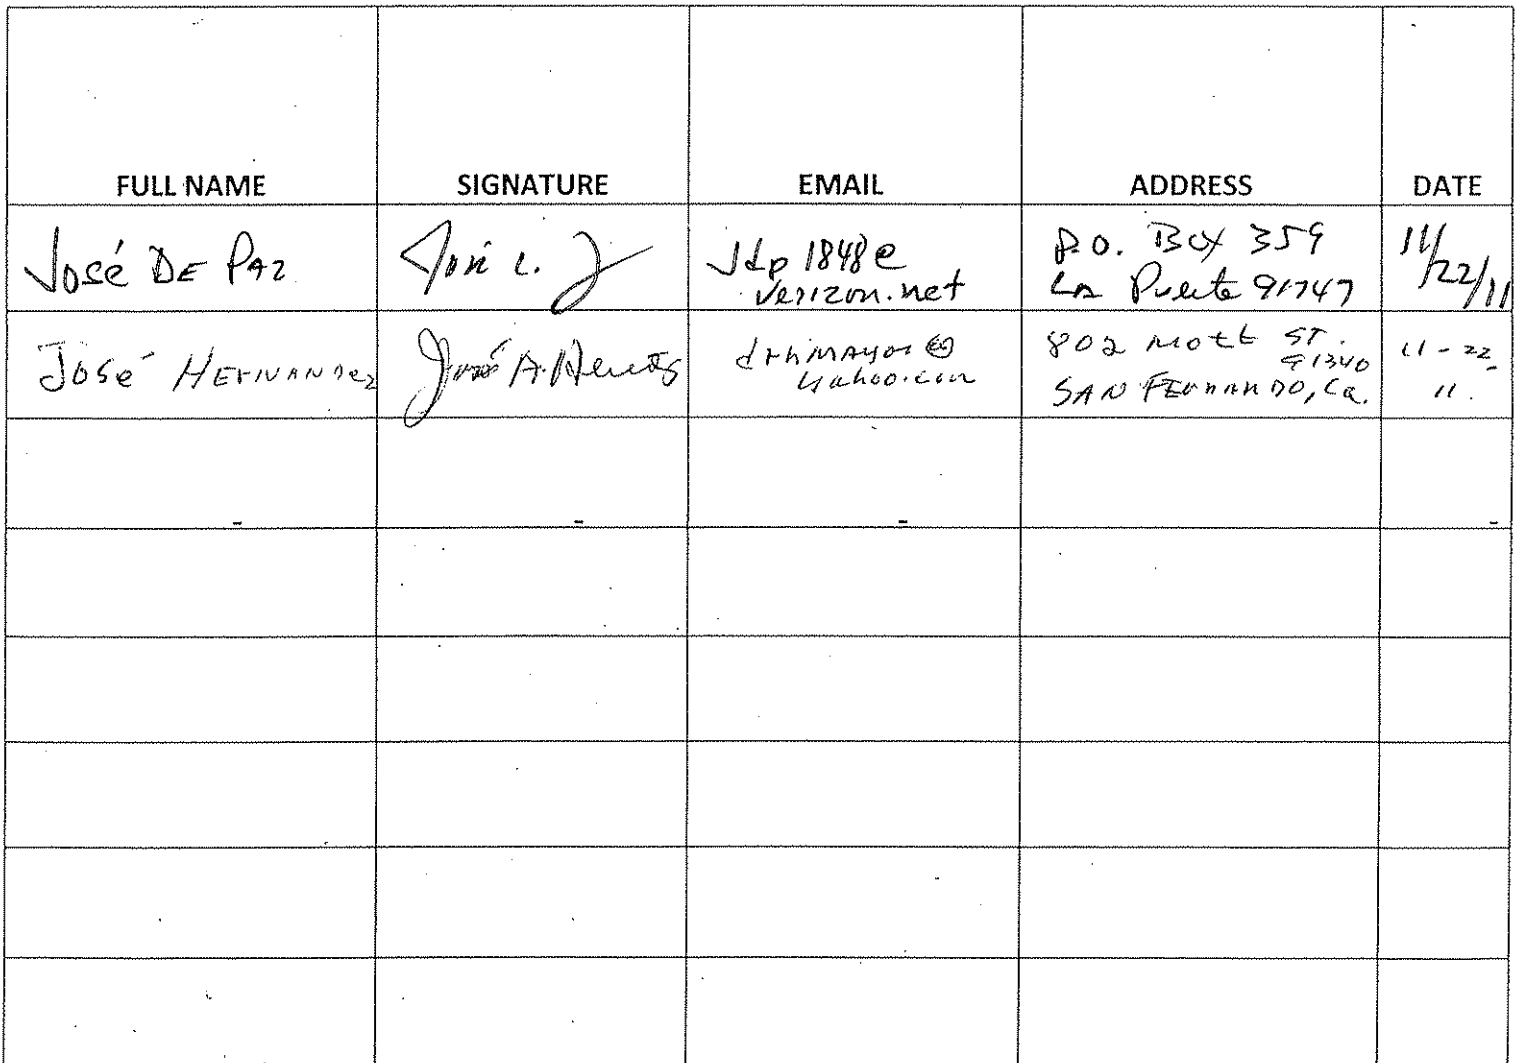 FULL NAME SIGNATURE EMAIL ADDRESS DATE
José DE PAZ
José L.
Jdp1848@
verizon.net
P.O. Box 359
La Puente 91747
11/22/11
José HERNANDEZ
José A.
yahoo.com
802 Mott ST.
91340
SAN FERNANDO, Ca.
11-22-
11.